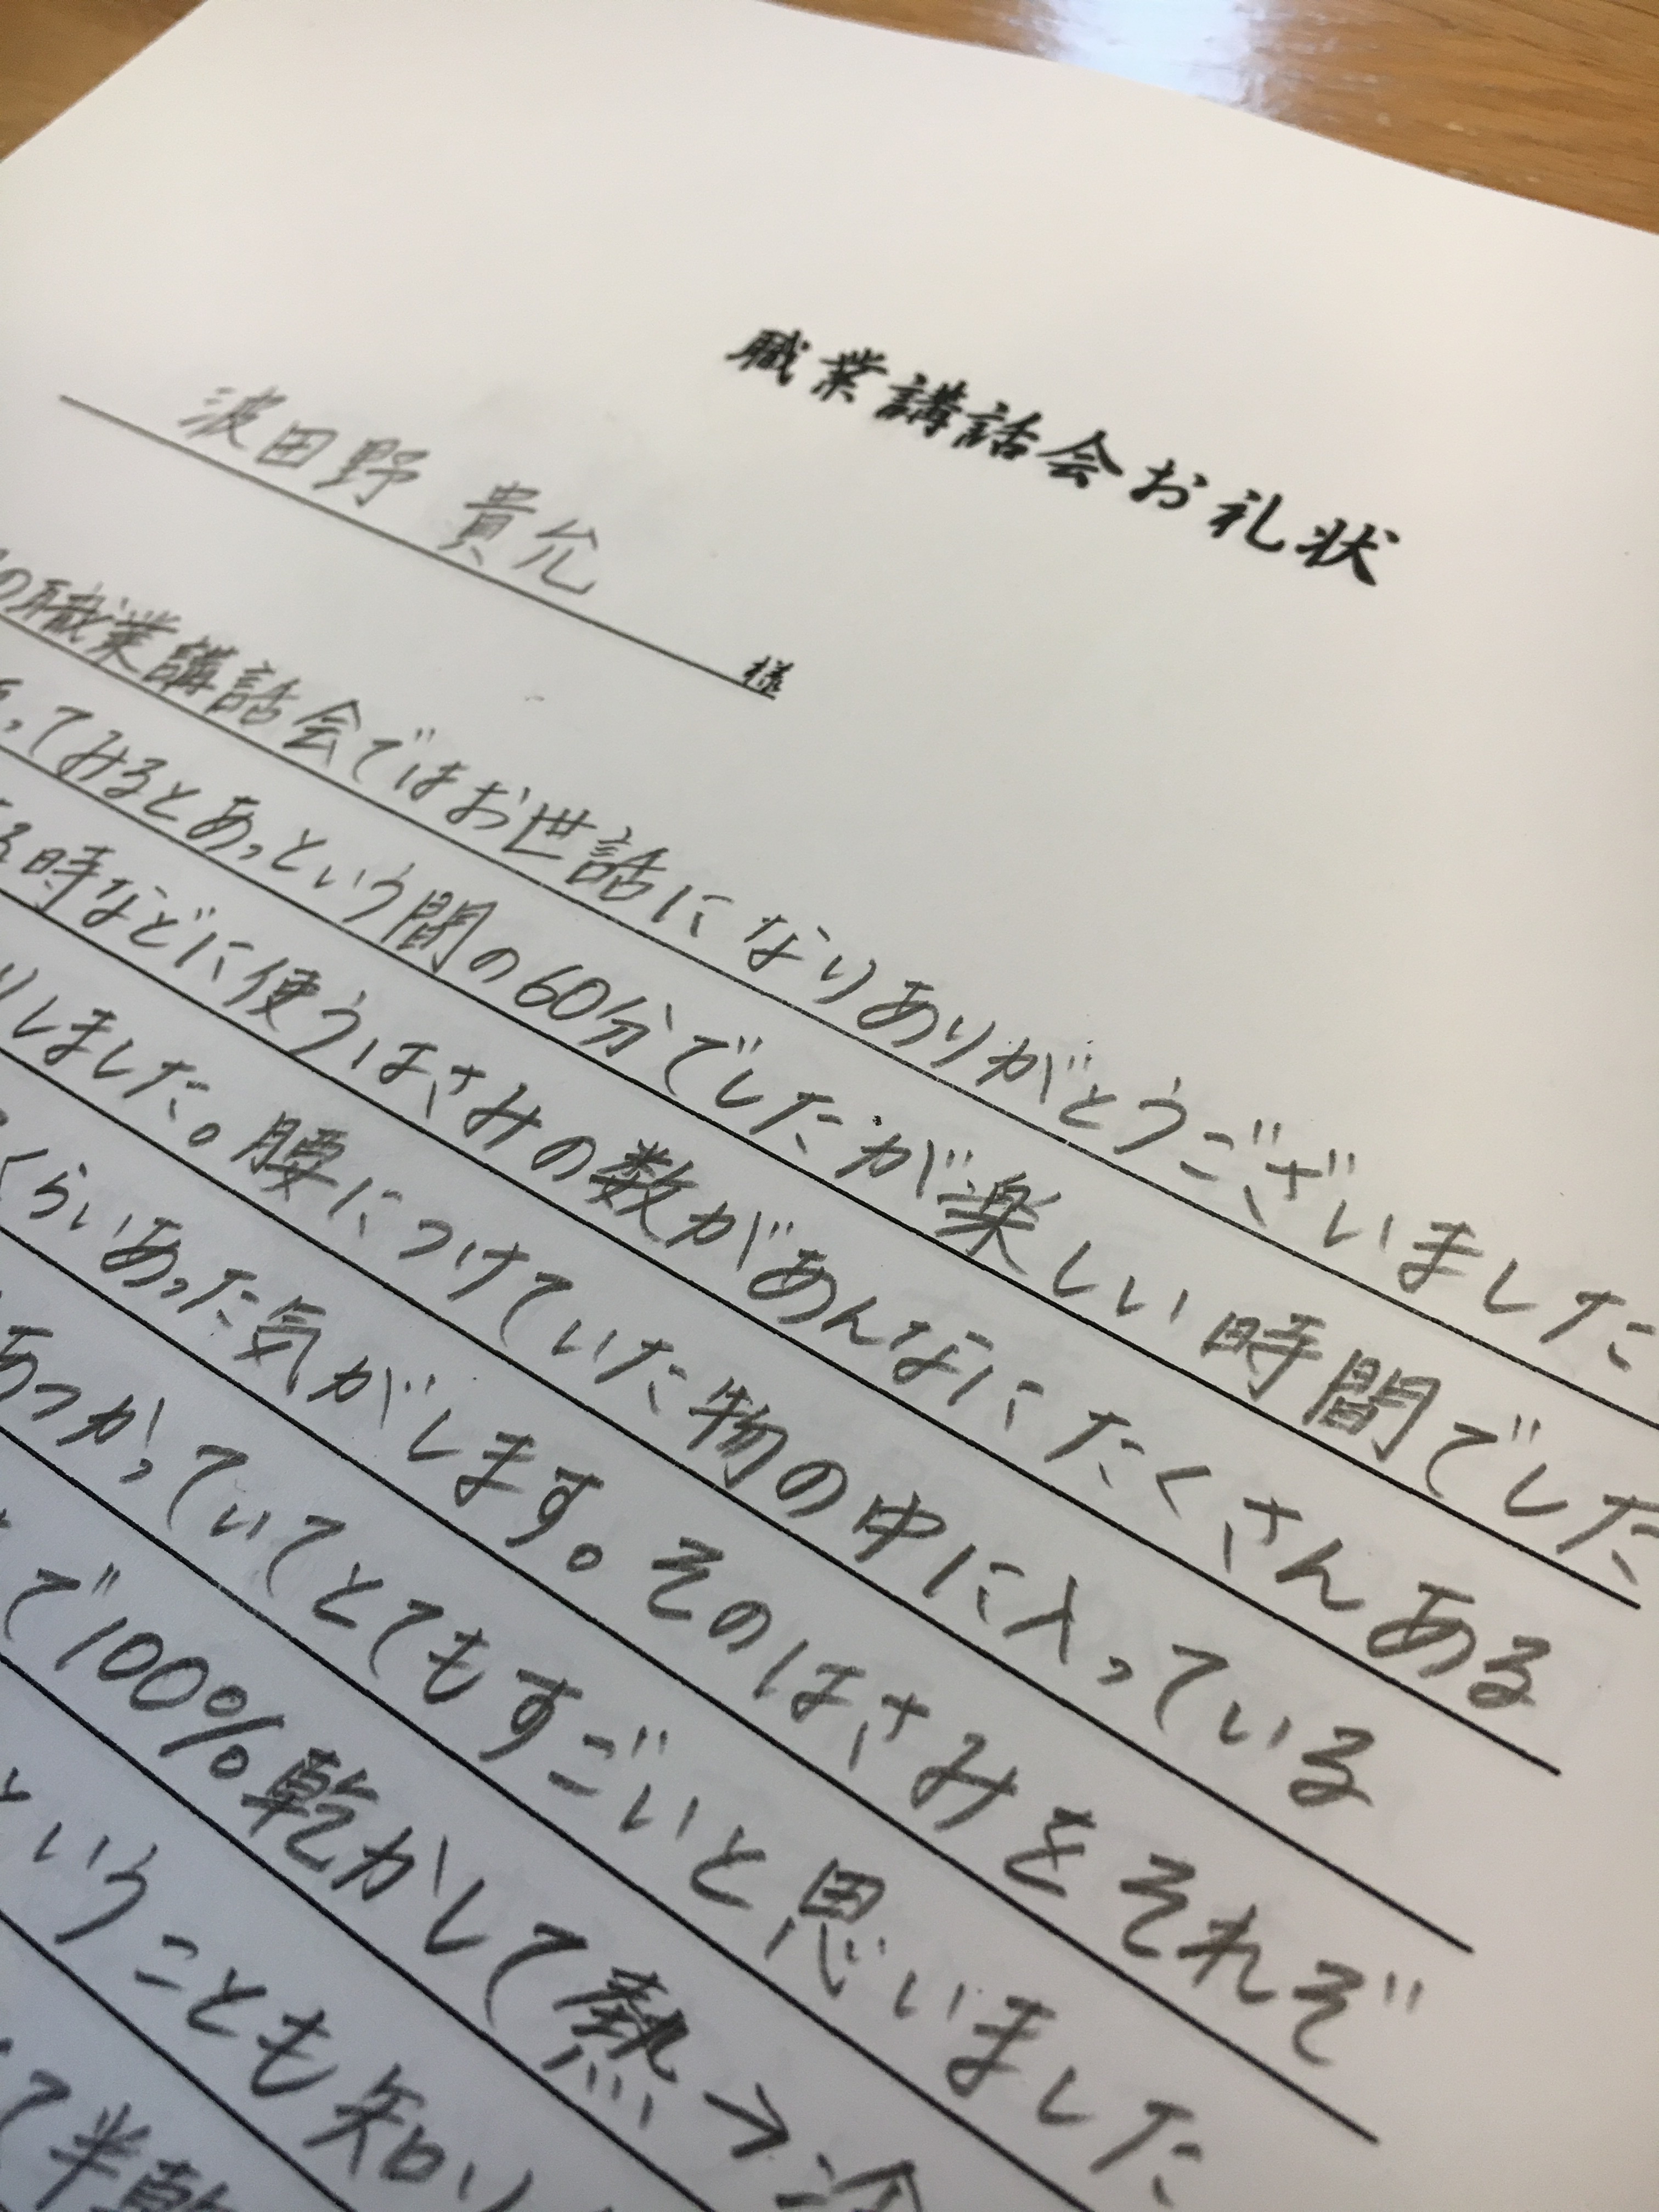 職業講話会お礼状
波田野 貴允 様
の職業講話会ではお世話になりありがとうございました
ってみるとあっという間の60分でしたが楽しい時間でした
る時などに使うはさみの数があんなにたくさんある
りしました。腰につけていた物の中に入っている
くらいあった気がします。そのはさみをそれぞ
あつかっていてとてもすごいと思いました
で100%乾かして熱→冷
ということも知り
て半乾